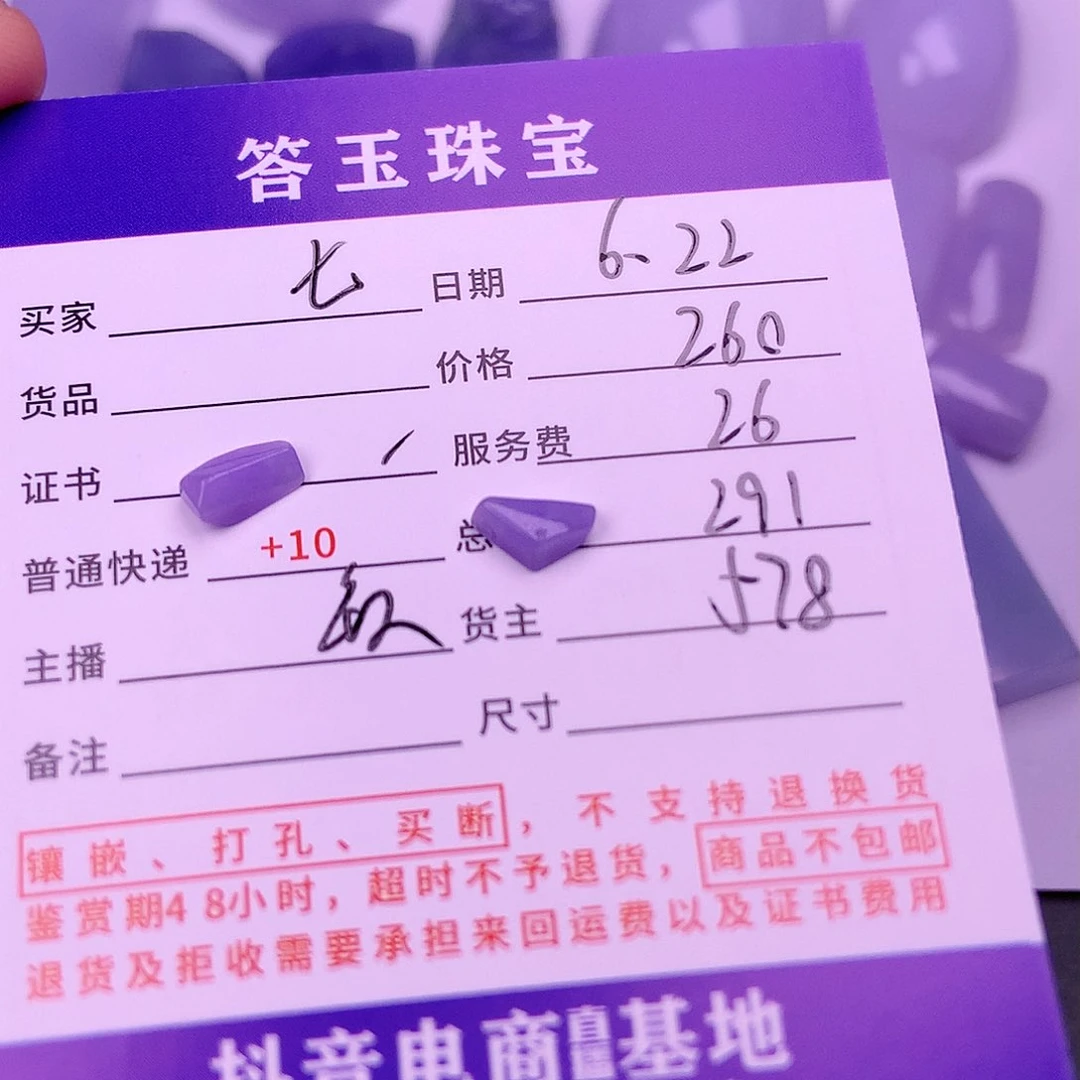 答玉珠宝
买家 七 日期 6.22
货品 价格 260
证书 服务费 26
普通快递 +10 总 291
主播 货主 578
备注 尺寸
镶嵌、打孔、买断，不支持退换货
鉴赏期48小时，超时不予退货，商品不包邮
退货及拒收需要承担来回运费以及证书费用
抖音电商直播基地